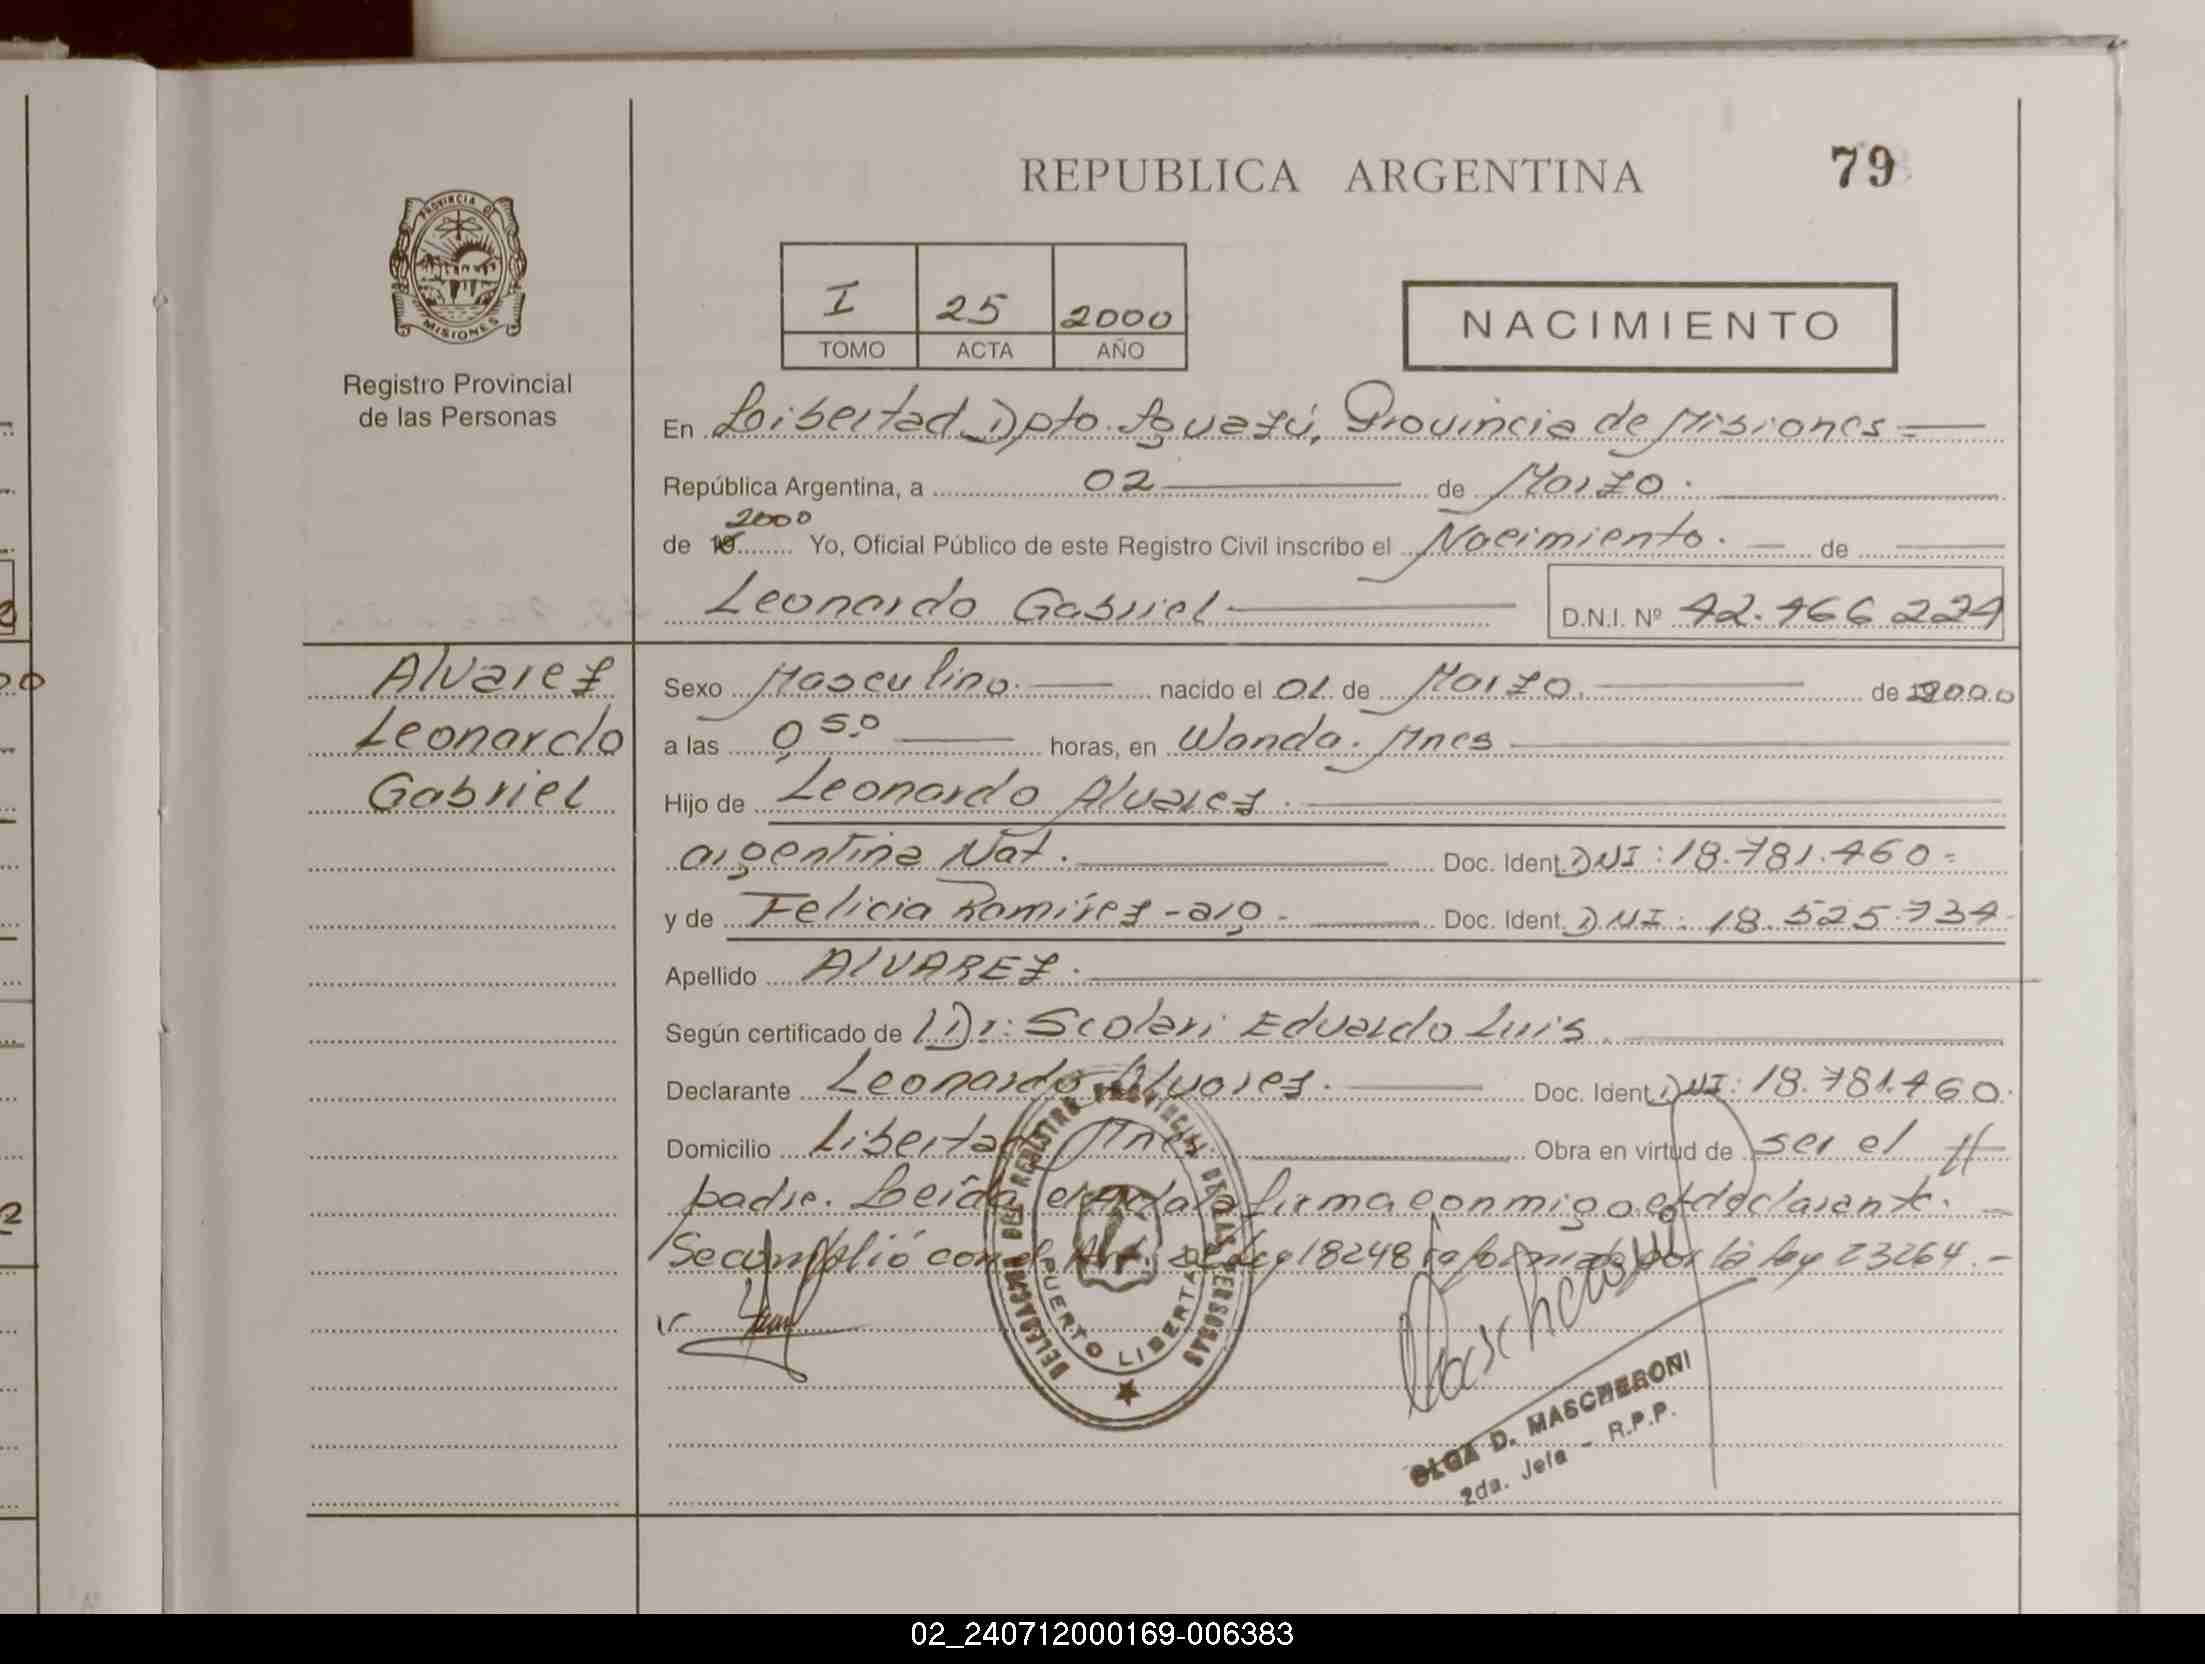 REPUBLICA ARGENTINA
79
PROVINCIA DE
MISIONES
Registro Provincial
de las Personas
I 25 2000
TOMO ACTA AÑO
NACIMIENTO
En Libertad Dpto. Iguazú, Provincia de Misiones =
República Argentina, a 02 de Marzo.
2000
de 19 Yo, Oficial Público de este Registro Civil inscribo el Nacimiento. de
Leonardo Gabriel D.N.I. Nº 42.466.224
Alvarez
Leonardo
Gabriel
Sexo Masculino. nacido el 01 de Marzo. de 2000
a las 0,50 horas, en Wanda. Mnes
Hijo de Leonardo Alvarez.
argentina Nat. Doc. Ident. DNI: 18.781.460=
y de Felicia Ramírez - arg. Doc. Ident. DNI: 18.525.734-
Apellido ALVAREZ.
Según certificado de Dr: Scolari Eduardo Luis.
Declarante Leonardo Alvarez. Doc. Ident. DNI: 18.781.460.
Domicilio Libertad Mnes. Obra en virtud de ser el //
padre. Leída el Acta la firma conmigo el declarante.
Se cumplió con el Art. de Ley 18248 reformada por la ley 23264.-
DELEGACION DEL REGISTRO PROVINCIAL DE LAS PERSONAS
PUERTO LIBERTAD
Mascheroni
OLGA D. MASCHERONI
2da. Jefa - R.P.P.
02_240712000169-006383